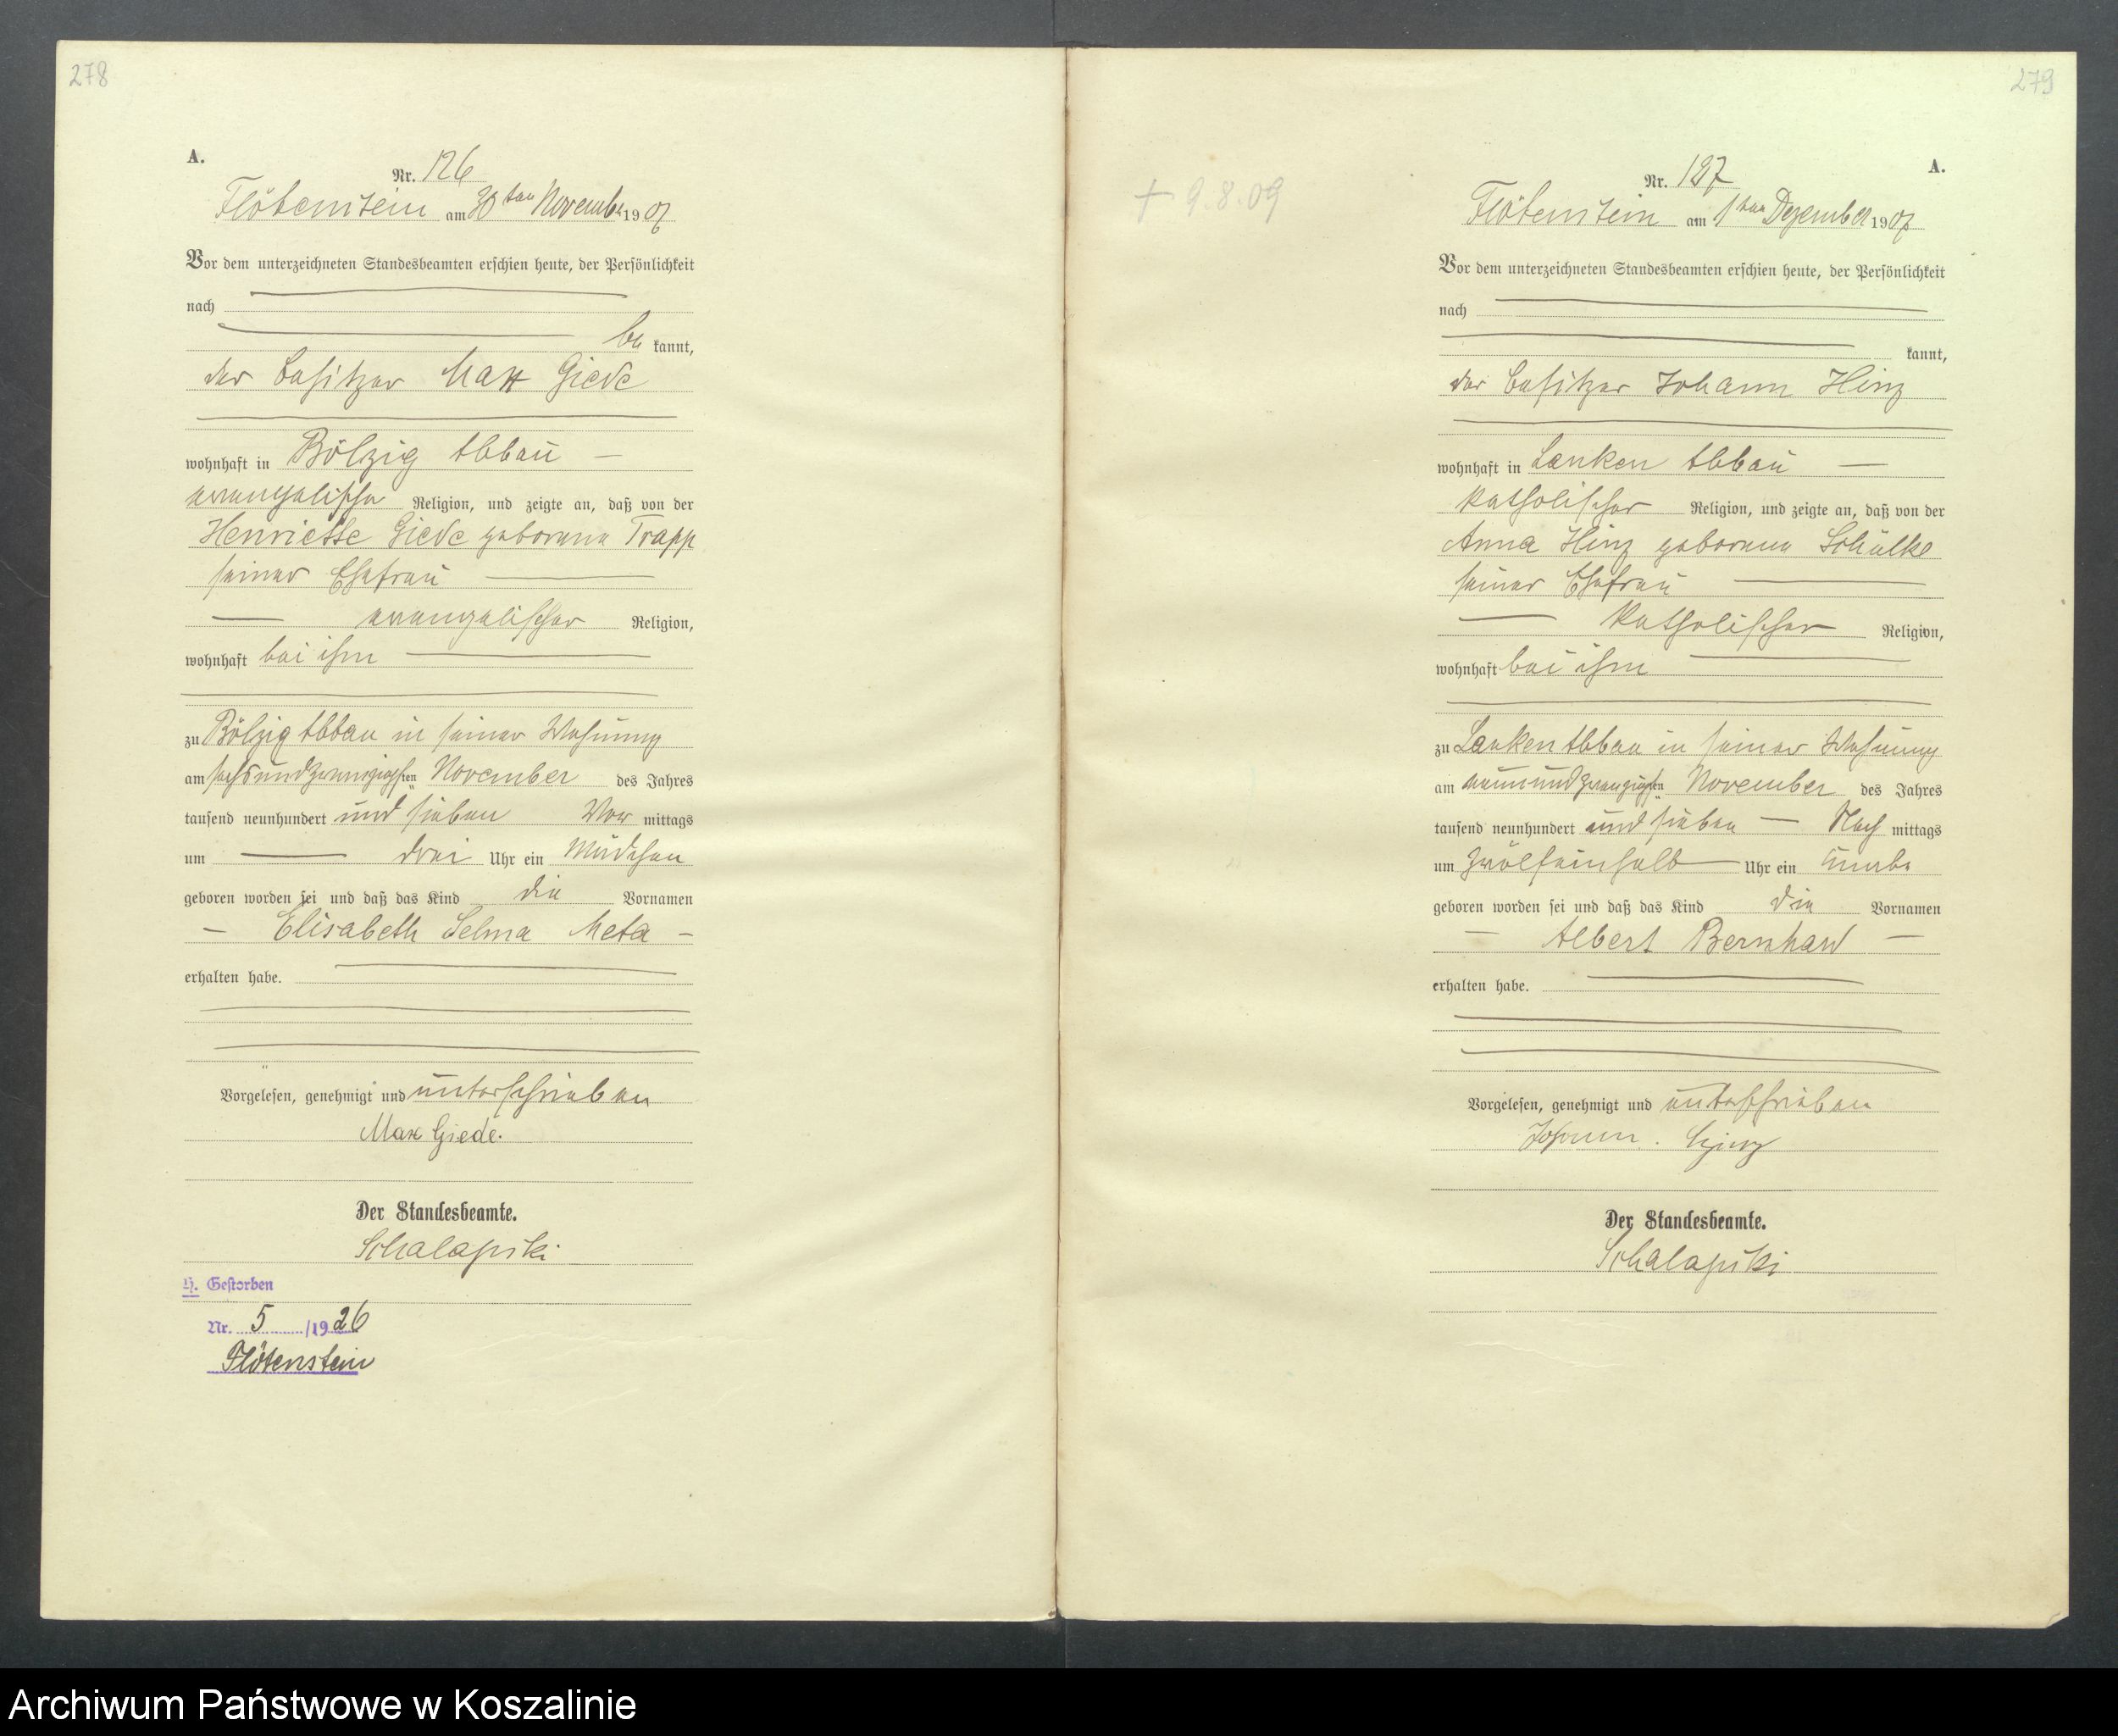 278
A.
Nr. 126
Flötenstein am 30ten November 1907
Vor dem unterzeichneten Standesbeamten erschien heute, der Persönlichkeit
nach
be kannt,
der Besitzer Max Giede
wohnhaft in Bölzig Abbau
evangelischer Religion, und zeigte an, daß von der
Henriette Giede geborene Trapp
seiner Ehefrau
evangelischer Religion,
wohnhaft bei ihm
zu Bölzig Abbau in seiner Wohnung
am sechsundzwanzigsten November des Jahres
tausend neunhundert und sieben Vor mittags
um drei Uhr ein Mädchen
geboren worden sei und daß das Kind die Vornamen
Elisabeth Selma Meta
erhalten habe.
Vorgelesen, genehmigt und unterschrieben
Max Giede.
Der Standesbeamte.
Schalapski
H. Gestorben
Nr. 5 /1926
Flötenstein
279
+ 9.8.09
A.
Nr. 127
Flötenstein am 1ten Dezember 1907
Vor dem unterzeichneten Standesbeamten erschien heute, der Persönlichkeit
nach
kannt,
der Besitzer Johann Hinz
wohnhaft in Lanken Abbau
katholischer Religion, und zeigte an, daß von der
Anna Hinz geborene Schülke
seiner Ehefrau
katholischer Religion,
wohnhaft bei ihm
zu Lanken Abbau in seiner Wohnung
am neunundzwanzigsten November des Jahres
tausend neunhundert und sieben Nach mittags
um zwölfeinhalb Uhr ein Knabe
geboren worden sei und daß das Kind die Vornamen
Albert Bernhard
erhalten habe.
Vorgelesen, genehmigt und unterschrieben
Johann Hinz
Der Standesbeamte.
Schalapski
Archiwum Państwowe w Koszalinie